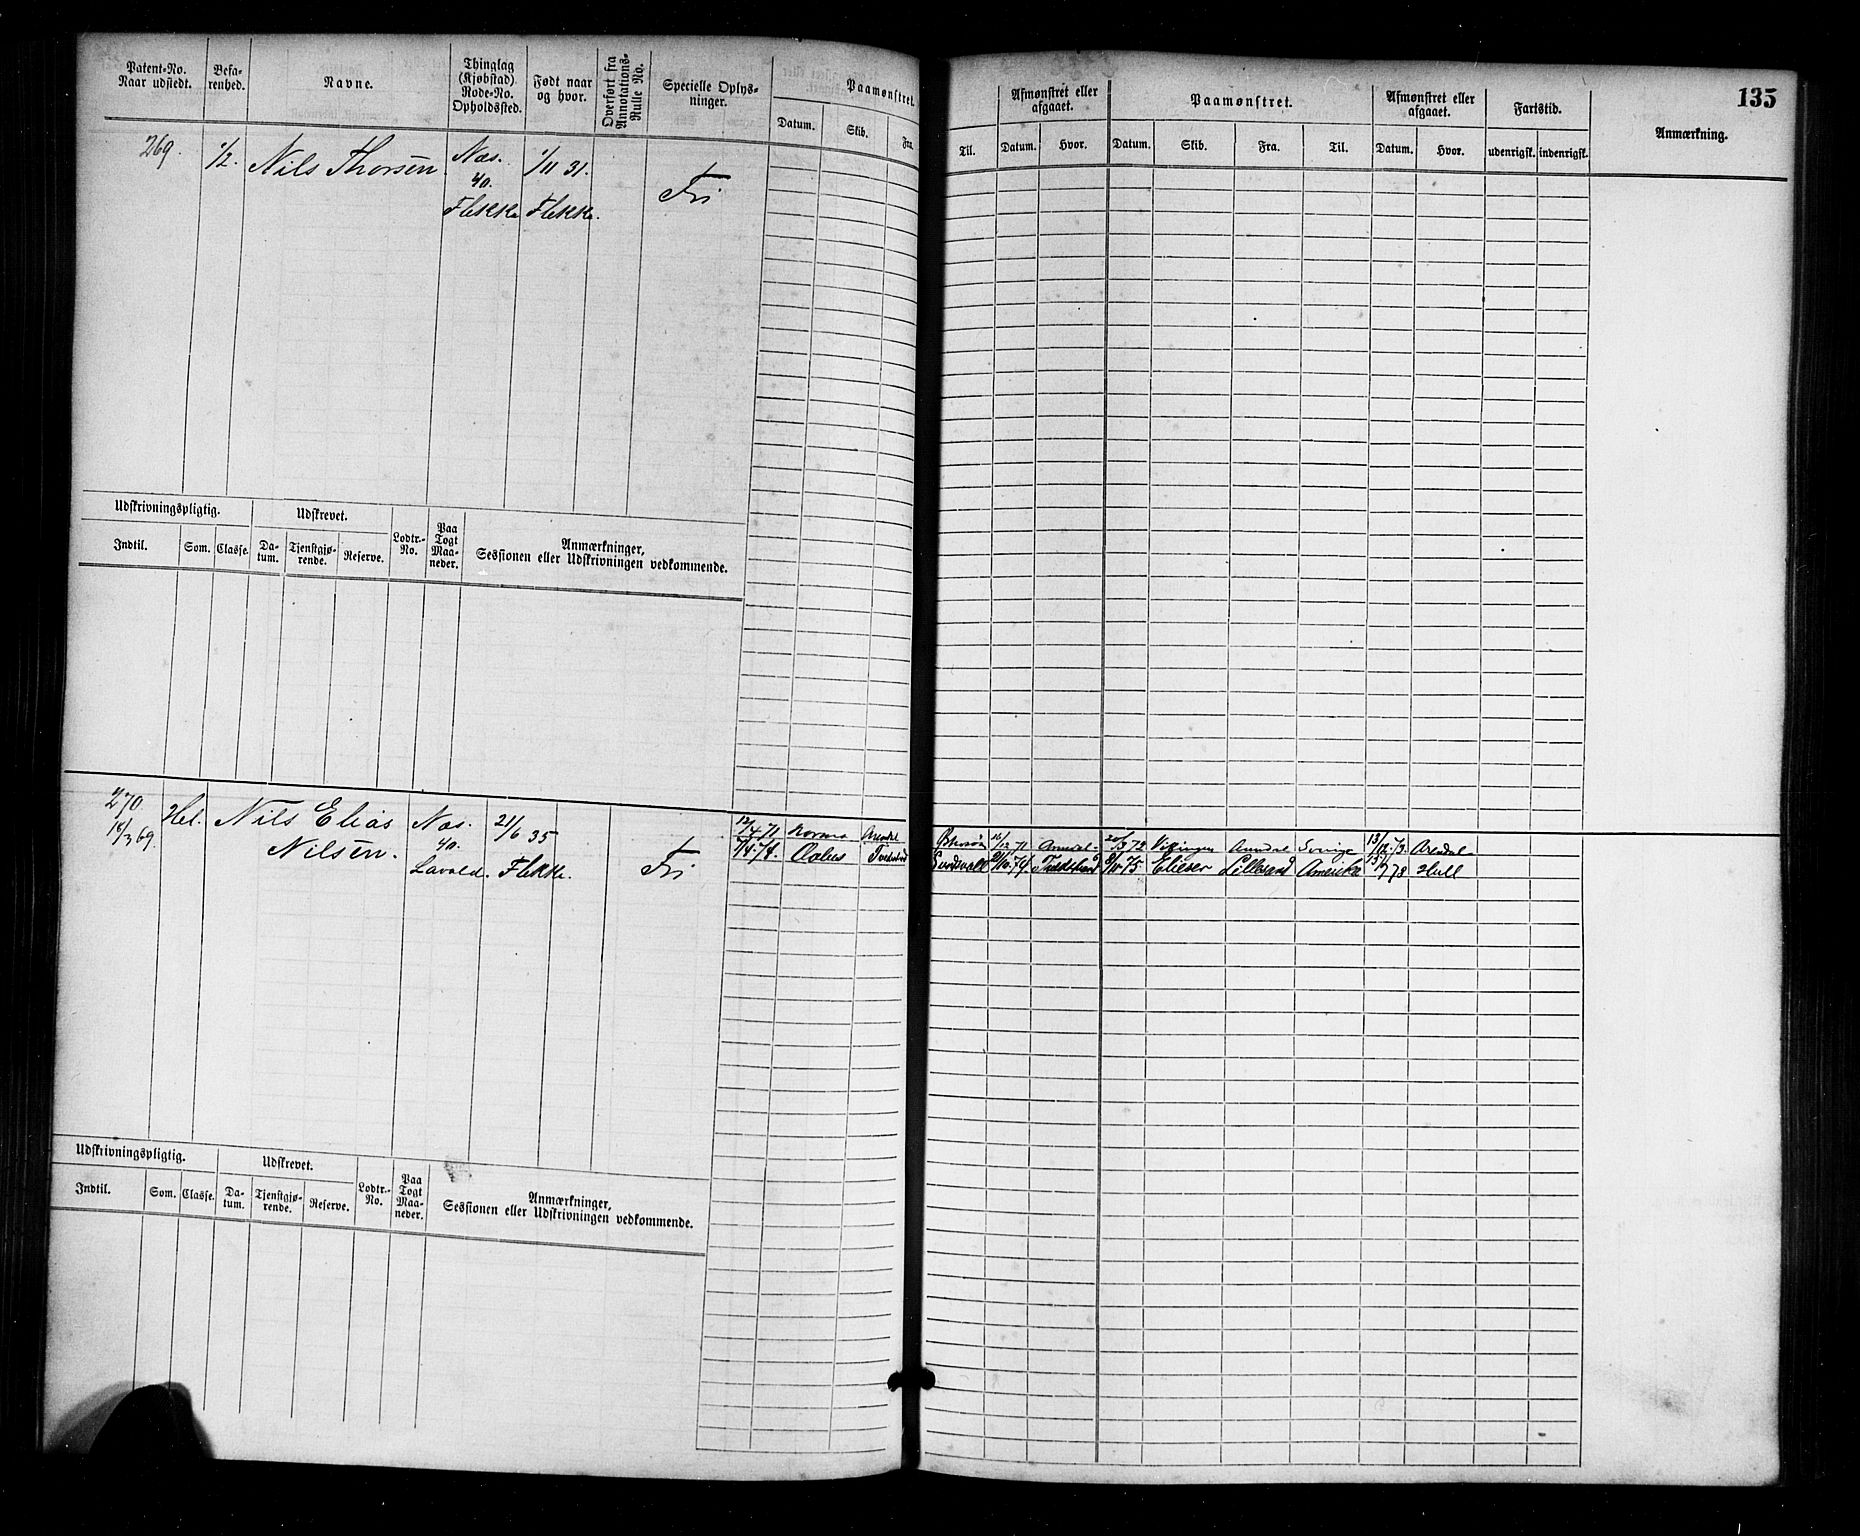 135
Patent-No. Naar udstedt. Befa-renhed. Navne. Thinglag (Kjøbstad) Rode-No. Opholdssted. Født naar og hvor. Overført fra Annotations-Rulle No. Specielle Oplys-ninger. Paamønstret. Datum. Skib. Fra.
Til. Afmønstret eller afgaaet. Datum. Hvor. Paamønstret. Datum. Skib. Fra. Til. Afmønstret eller afgaaet. Datum. Hvor. Fartstid. udenrigsk. indenrigsk. Anmærkning.
269. 1/2. Nils Thorsen Næs. 1/11 31.
40. Fri
Flekke Flekke.
Udskrivningspligtig. Udskrevet. Lodtr.-No. Paa Togt Maa-neder. Anmærkninger, Sessionen eller Udskrivningen vedkommende.
Indtil. Som. Classe. Da-tum. Tjenstgjø-rende. Reserve.
270. Hel. Nils Elias Næs. 21/6 35
18/3 69. Nilsen. 40. Fri
Lavold. Flekke.
12/4 71 Norma Arendal 16/12 71 Arendal 20/3 72 Vikingen Arendal Sverige 13/12 73. Arendal
7/4 74. Aolus Tvedestrand 9/10 74. Tvedestrand 8/11 75 Elieser Lillesand Amerika 13/7 78 Hull
Udskrivningspligtig. Udskrevet. Lodtr.-No. Paa Togt Maa-neder. Anmærkninger, Sessionen eller Udskrivningen vedkommende.
Indtil. Som. Classe. Da-tum. Tjenstgjø-rende. Reserve.